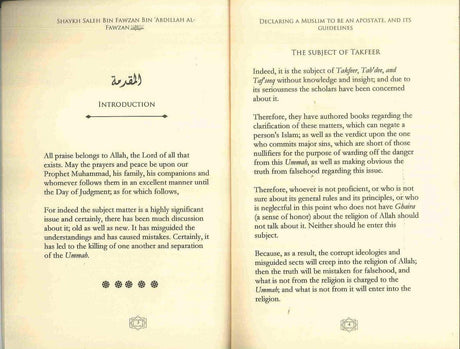 Shaykh Saleh Bin Fawzan Bin 'Abdillah al-
Fawzan
المقدمة
Introduction
All praise belongs to Allah, the Lord of all that
exists. May the prayers and peace be upon our
Prophet Muhammad, his family, his companions and
whomever follows them in an excellent manner until
the Day of Judgment; as for which follows,
For indeed the subject matter is a highly significant
issue and certainly, there has been much discussion
about it; old as well as new. It has misguided the
understandings and has caused mistakes. Certainly, it
has led to the killing of one another and separation
of the Ummah.
3
Declaring a Muslim to be an apostate, and its
guidelines
The subject of Takfeer
Indeed, it is the subject of Takfeer, Tab'dee, and
Tafseeq without knowledge and insight; and due to
its seriousness the scholars have been concerned
about it.
Therefore, they have authored books regarding the
clarification of these matters, which can negate a
person's Islam; as well as the verdict upon the one
who commits major sins, which are short of those
nullifiers for the purpose of warding off the danger
from this Ummah, as well as making obvious the
truth from falsehood regarding this issue.
Therefore, whoever is not proficient, or who is not
sure about its general rules and its principles, or who
is neglectful in this point who does not have Gheira
(a sense of honor) about the religion of Allah should
not talk about it. Neither should he enter this
subject.
Because, as a result, the corrupt ideologies and
misguided sects will creep into the religion of Allah;
then the truth will be mistaken for falsehood, and
what is not from the religion is charged to the
Ummah; and what is not from it will enter into the
religion.
4